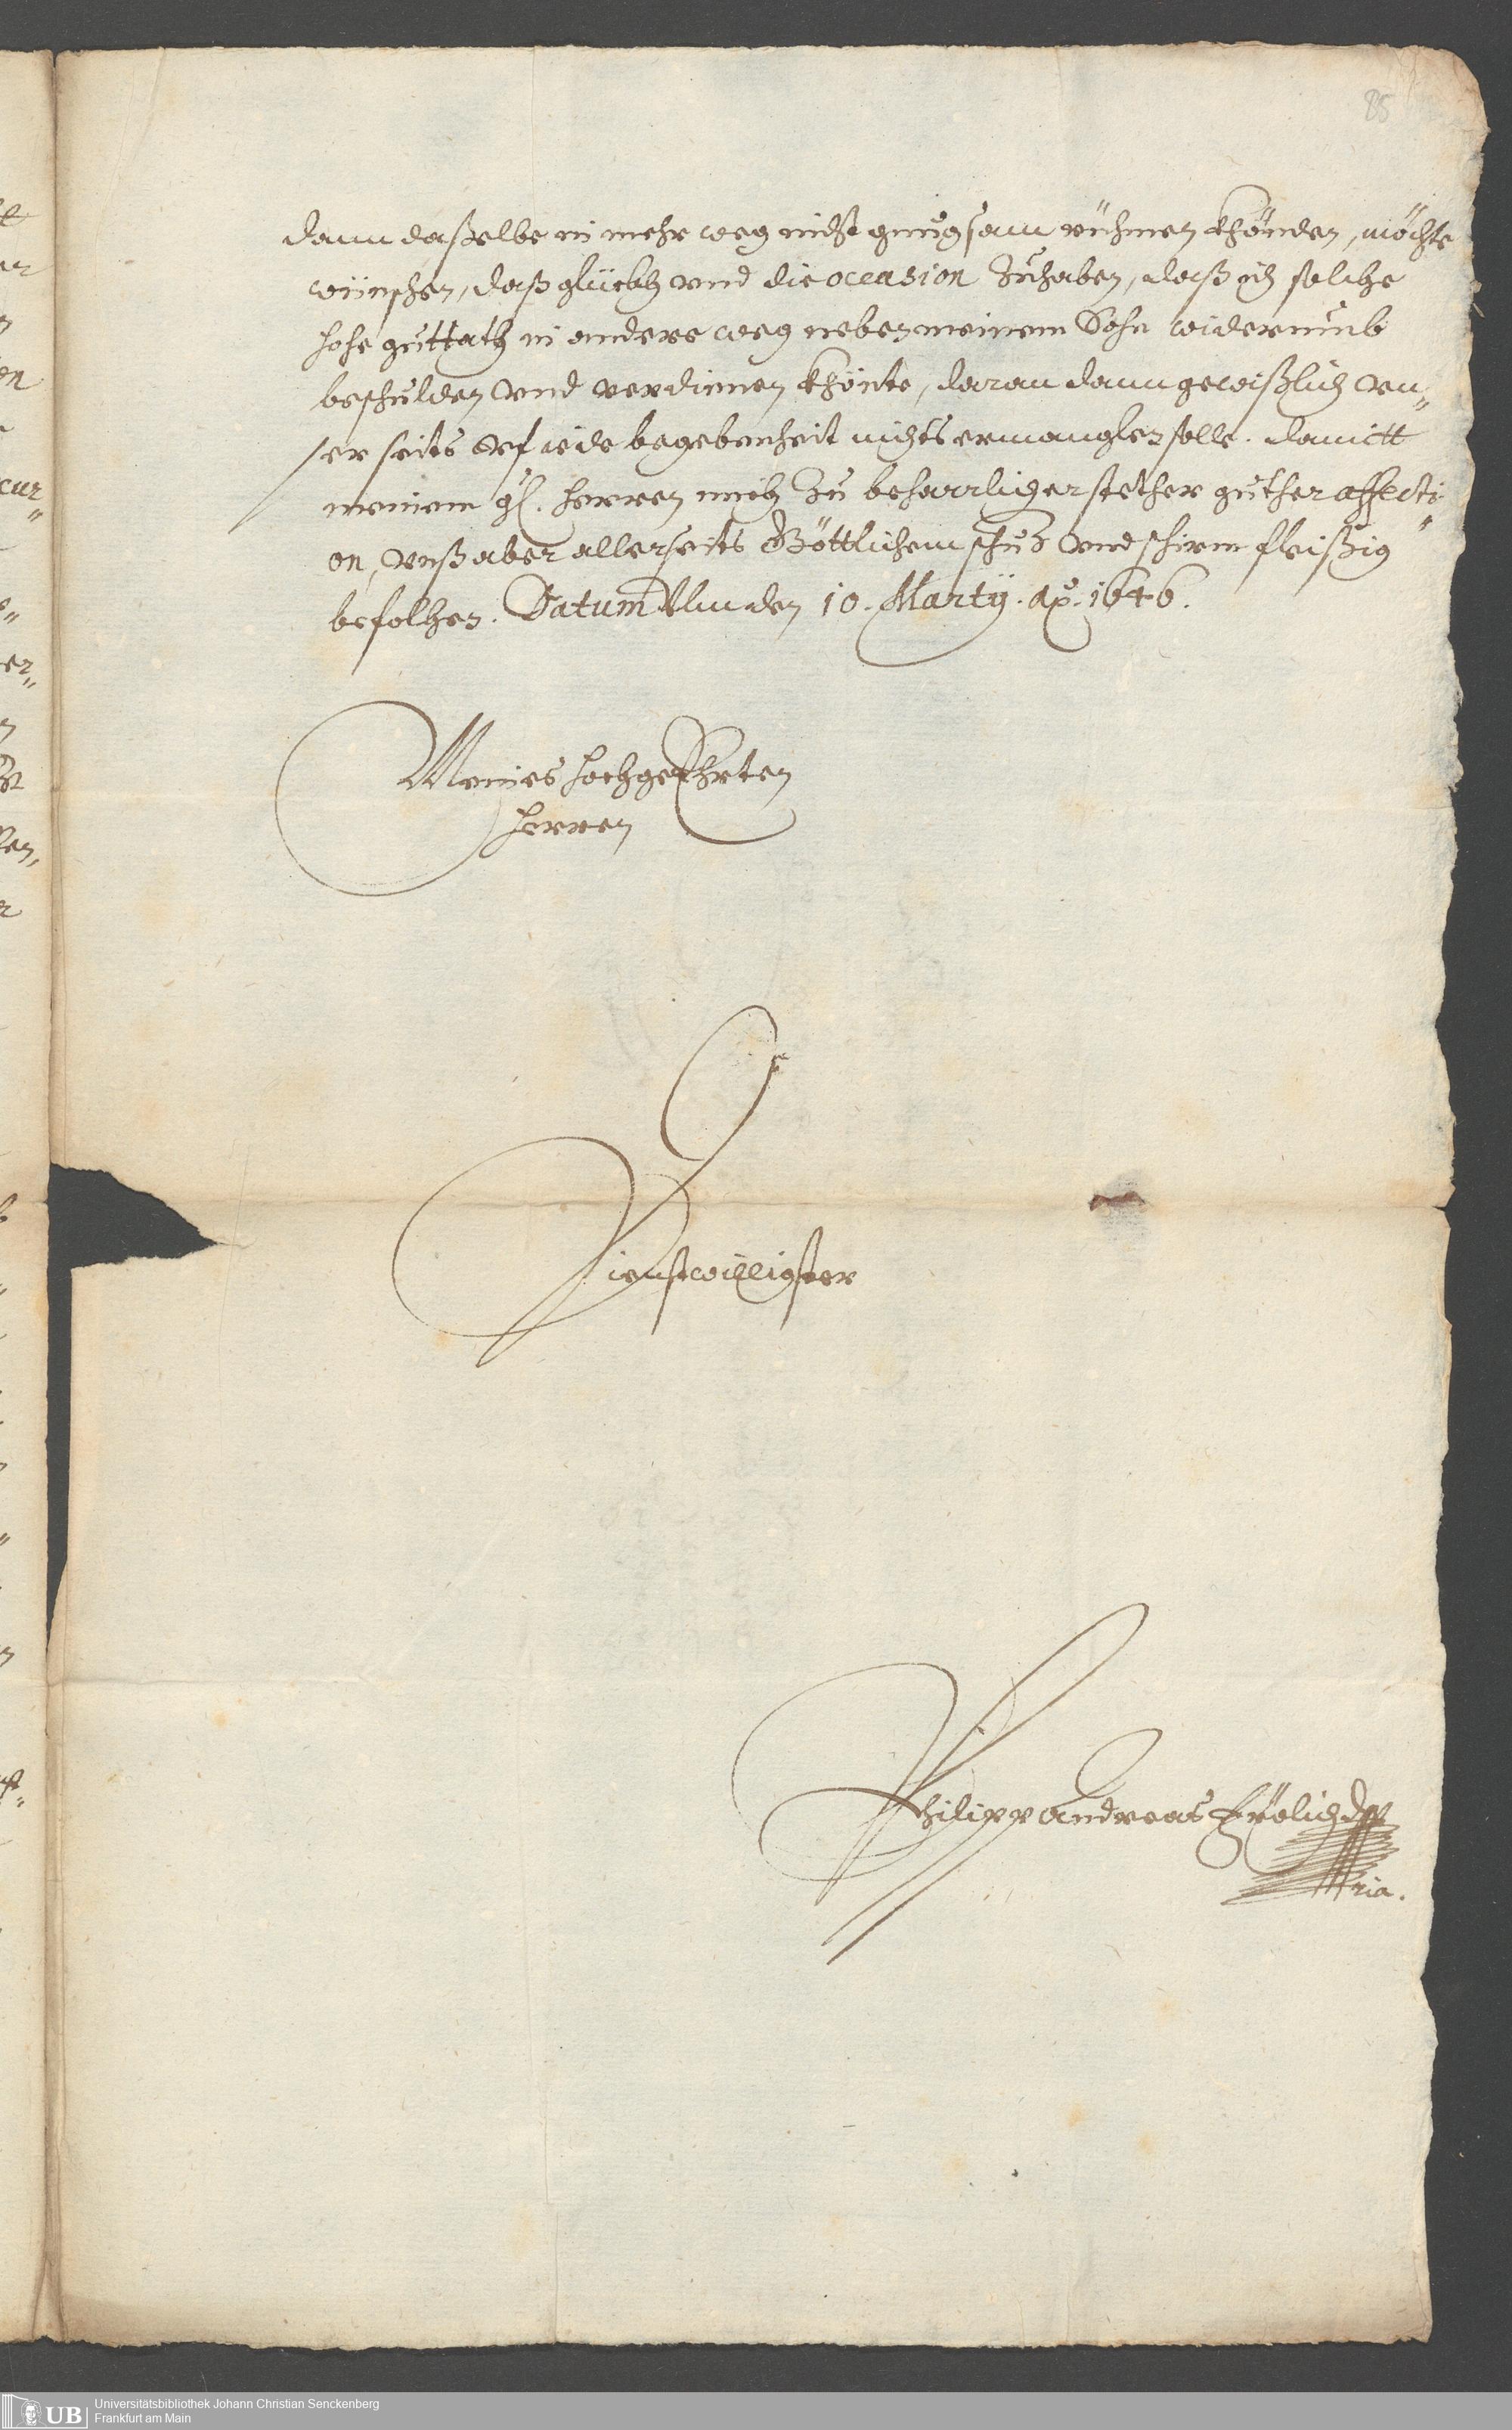 85
dann daßelbe in mehr weg nicht gnugsam rühmen khönden, möchte
wünschen, daß glückh vnd die occasion zuhaben, daß ich solche
hohe gutthath in andere weg neben meinem Sohn widerumb
beschulden vnd verdinnen khönte, daran dann gewißlich vn„
ser seits vf iede begebenheit nichts ermanglen solle. damitt
meinem gl. herren mich zu beharrlicher stether guther affecti„
on, vnß aber allerseits Göttlichem schuz vnd schirm fleißig
befolhen. Datum Ulm den 10. Martij. Ao. 1646.
Meines hochgeEhrten
herren
Dienstwilligster
Philipp Andreas Frölich D
ria.
UB Universitätsbibliothek Johann Christian Senckenberg
Frankfurt am Main